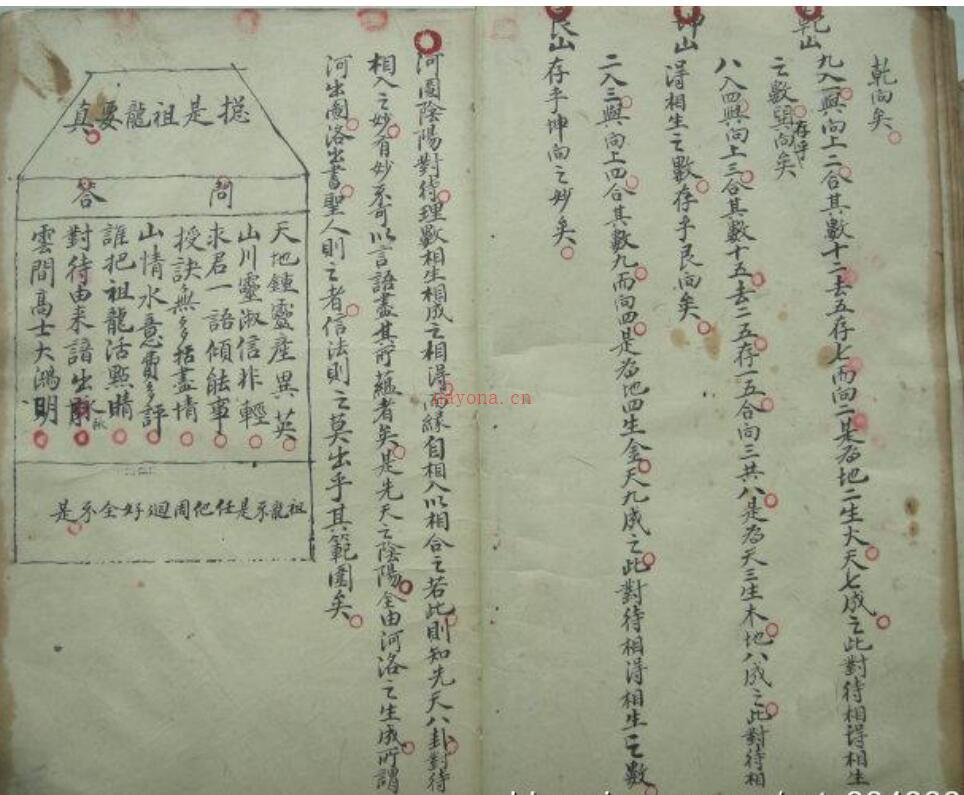 乾向矣
乾山
九入一與向上二合其數十二去五存七而向二是為地二生火天七成之此對待相得相生
之數存乎巽向矣
坤山
八入四與向上三合其數十五去二五存一五合向三共八是為天三生木地八成之此對待相
得相生之數存乎艮向矣
艮山
二入三與向上四合其數九而向四是為地四生金天九成之此對待相得相生之數
存乎坤向之妙矣
河圖陰陽對待理數相生相成之相得而緣自相入以相合之若此則知先天八卦對待
相入之妙有妙不可以言語盡其所蘊者矣是先天之陰陽全由河洛之生成所謂
河出圖洛出書聖人則之者信法則之莫出乎其範圍矣
摠是祖龍要真
問
答
天地鍾靈產異英
山川靈淑信非輕
求君一語傾能事
授訣無多括盡情
山情水意費多評
誰把祖龍活點睛
對待由來諳生
雲間高士大鴻明
祖龍不是任他周迴好全不是
dayona.cn